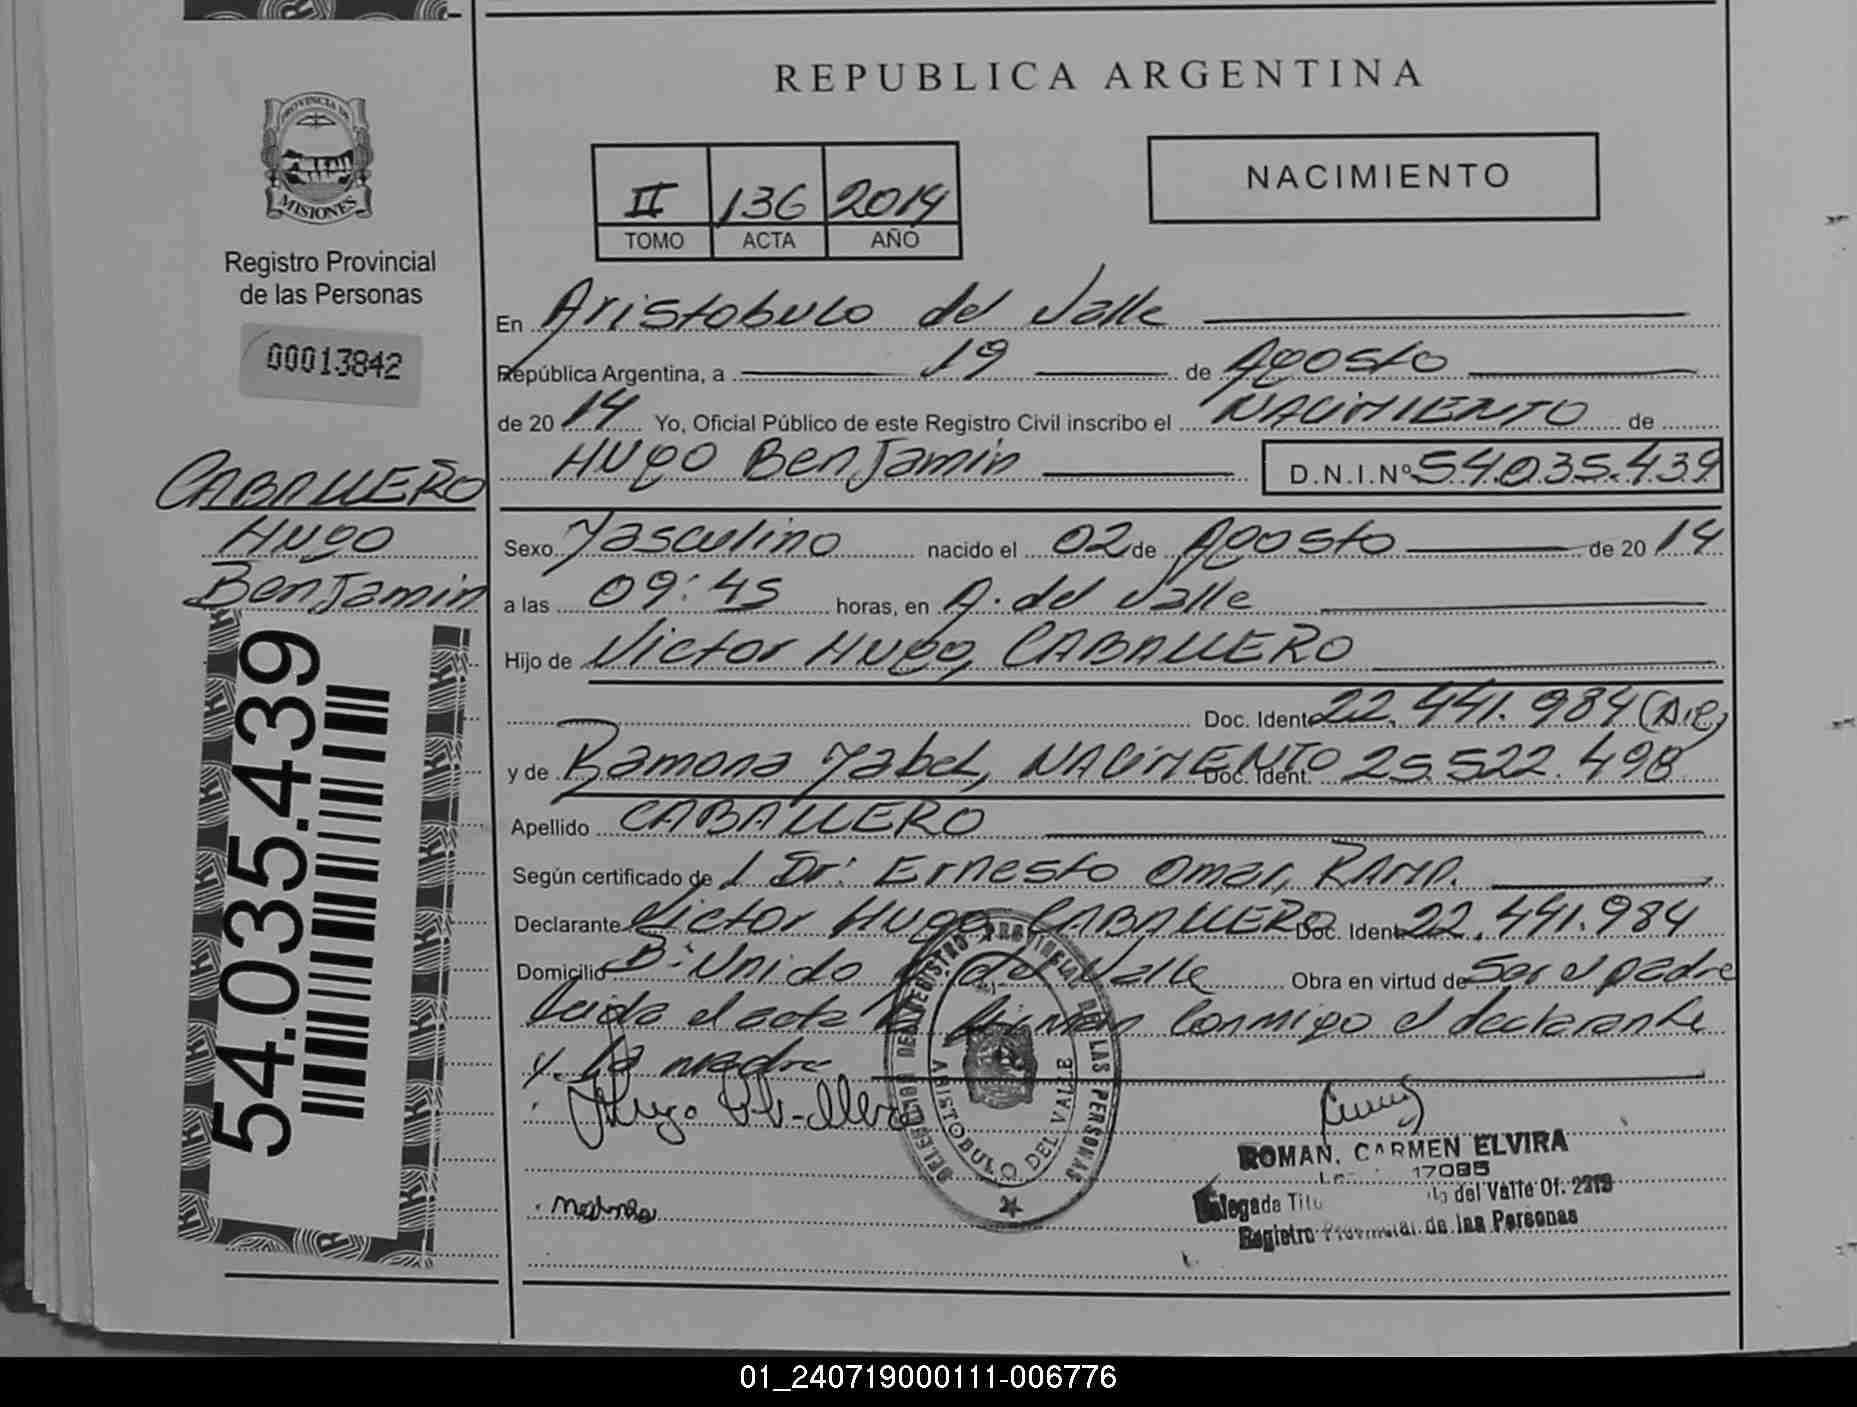 REPUBLICA ARGENTINA
PROVINCIA DE
MISIONES
Registro Provincial
de las Personas
00013842
II 136 2014
TOMO ACTA AÑO
NACIMIENTO
En Aristobulo del Valle
República Argentina, a 19 de Agosto
de 2014 Yo, Oficial Público de este Registro Civil inscribo el NACIMIENTO de
Hugo Benjamin D.N.I.Nº 54.035.439
CABALLERO
Hugo
Benjamin
54.035.439
Sexo Masculino nacido el 02 de Agosto de 2014
a las 09:45 horas, en A. del Valle
Hijo de Victor Hugo, CABALLERO
Doc. Ident. 22.441.984
y de Ramona Mabel, NACIMENTO Doc. Ident. 25.522.498
Apellido CABALLERO
Según certificado de Dr. Ernesto Omar, RAMP.
Declarante Victor Hugo CABALLERO Doc. Ident. 22.441.984
Domicilio Bº Unido A. del Valle Obra en virtud de Ser el padre
Leida el acta la firman conmigo el declarante
y la madre
Hugo
DELEGACION DEL REGISTRO PROVINCIAL DE LAS PERSONAS
ARISTOBULO DEL VALLE
ROMAN, CARMEN ELVIRA
17085
Delegada del Valle Of. 2219
Registro Provincial de las Personas
01_240719000111-006776